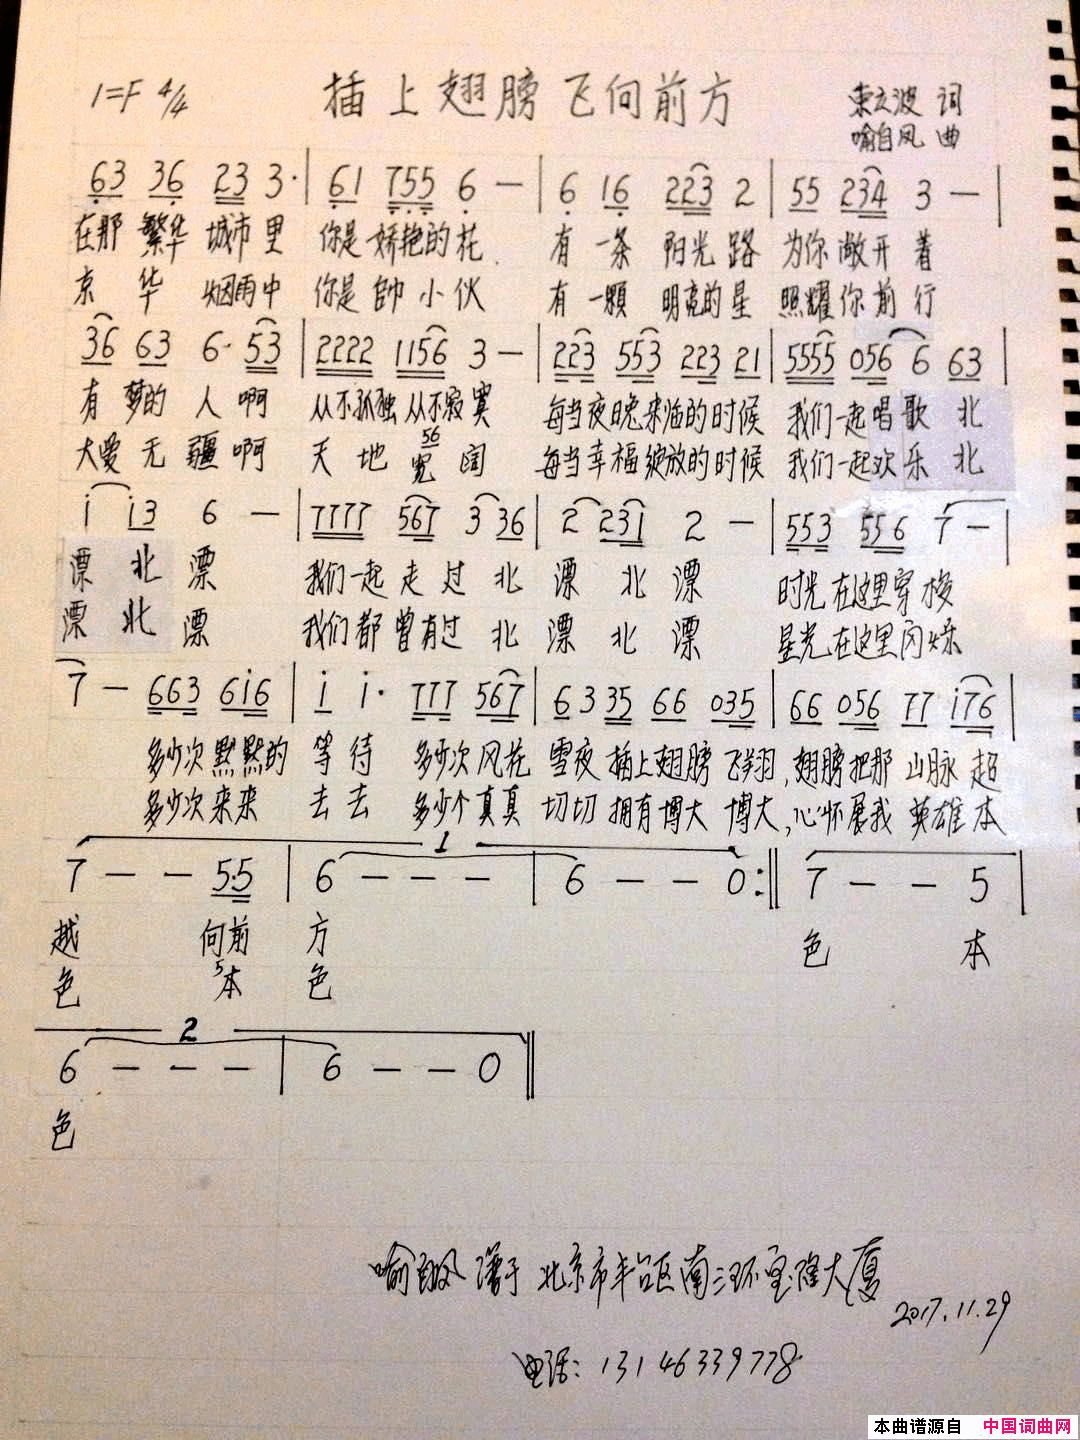 1=F 4/4 插上翅膀飞向前方 束立波 词
喻自凤 曲
63 36 23 3· | 61 755 6 — | 6 16 223 2 | 55 234 3 — |
在那 繁华 城市 里 你是 娇艳的 花 有 一条 阳光 路 为你 敞开 着
京 华 烟雨中 你是 帥 小 伙 有 一颗 明亮的 星 照耀 你 前 行
36 63 6· 53 | 2222 1156 3 — | 223 553 223 21 | 5555 056 6 63 |
有 梦的 人 啊 从不孤独 从不寂寞 每当夜晚来临的时候 我们一起唱 歌 北
大爱 无 疆 啊 天 地 宽 阔 每当幸福绽放的时候 我们一起欢 乐 北
56
i i3 6 — | 7777 567 3 36 | 2 231 2 — | 553 556 7 — |
漂 北 漂 我们一起 走 过 北 漂 北 漂 时光 在这里 穿 梭
漂 北 漂 我们都 曾有过 北 漂 北 漂 星光 在这里 闪烁
7 — 663 6i6 | i i· 777 567 | 6 3 35 66 035 | 66 056 77 i76 |
多少次 默默的 等 待 多少次 风花 雪夜 插上翅膀 飞翔, 翅膀 把那 山脉 超
多少次 来来 去 去 多少个 真真 切切 拥有 博大 博大, 心怀 展我 英雄 本
1
7 — — 5·5 | 6 — — — | 6 — — 0 :‖ 7 — — 5 |
越 向前 方 色 本
色 本 色
5
2
6 — — — | 6 — — 0 ‖
色
喻自凤 谱于 北京市丰台区南三环宝隆大厦
2017.11.29
电话: 13146339778
本曲谱源自 中国词曲网